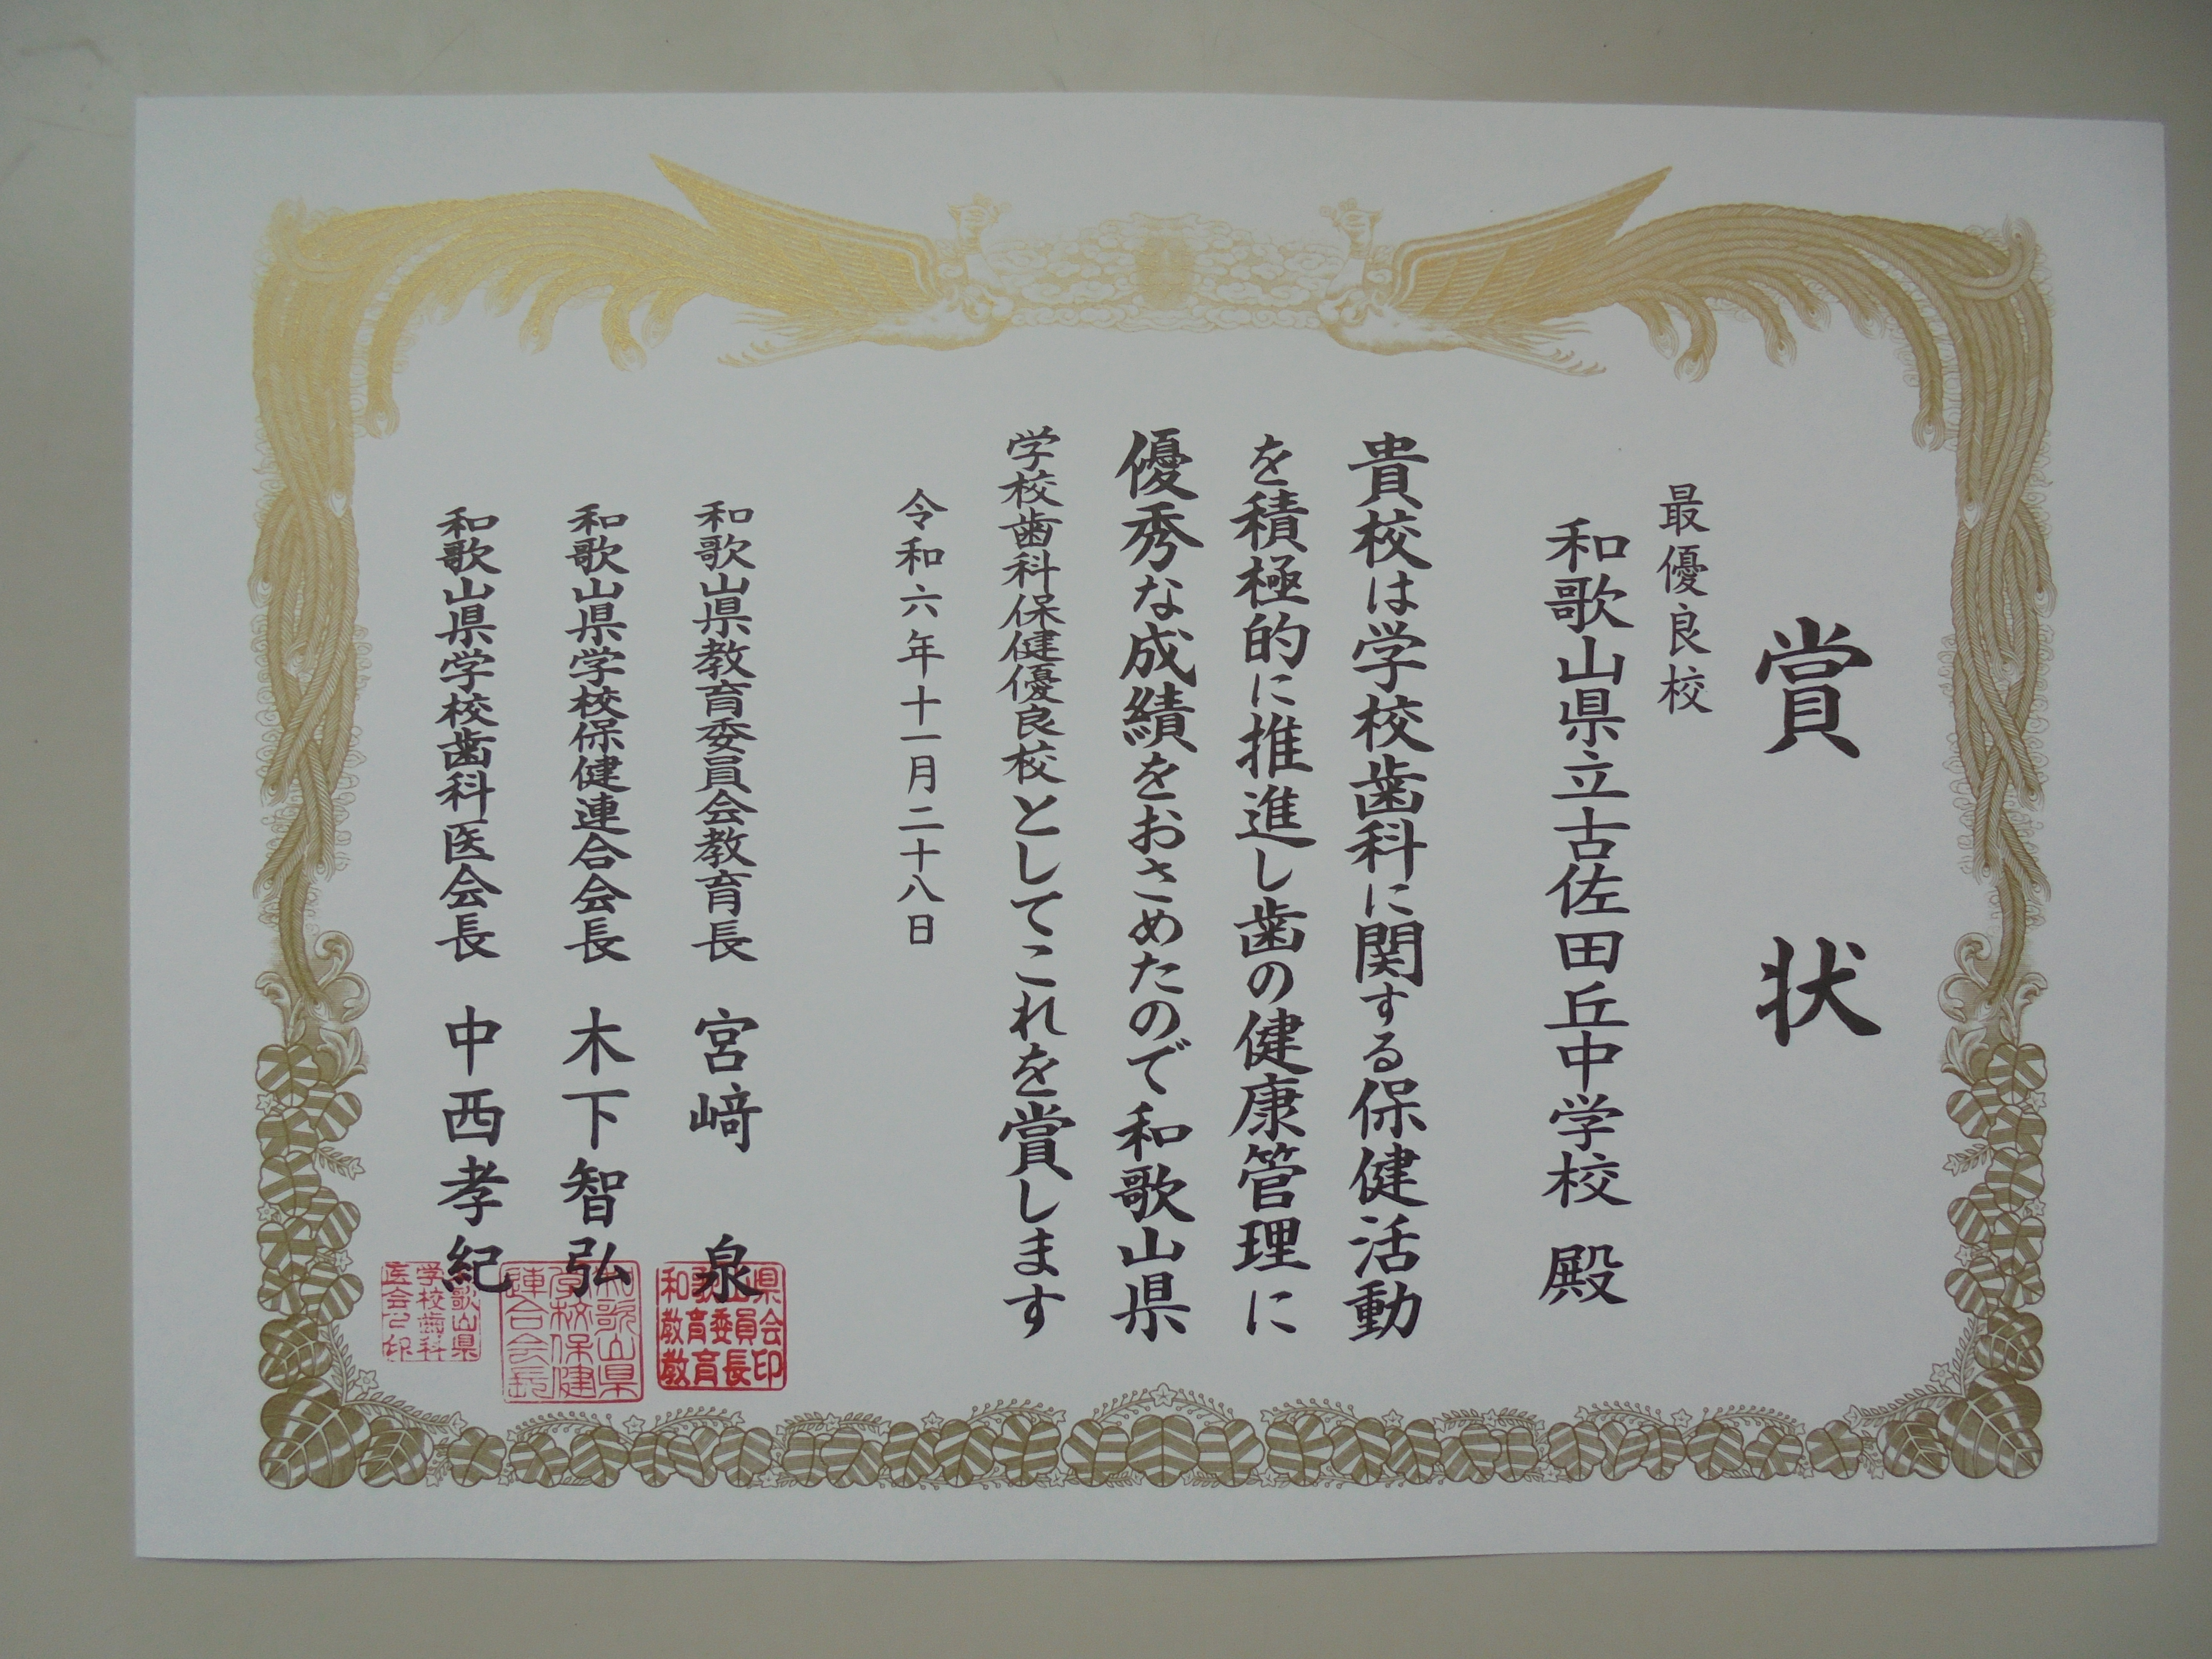 賞状
最優良校
和歌山県立古佐田丘中学校 殿
貴校は学校歯科に関する保健活動
を積極的に推進し歯の健康管理に
優秀な成績をおさめたので和歌山県
学校歯科保健優良校としてこれを賞します
令和六年十一月二十八日
和歌山県教育委員会教育長 宮﨑 泉
和歌山県学校保健連合会長 木下智弘
和歌山県学校歯科医会長 中西孝紀
和歌山県
教育委員会
教育長印
和歌山県
学校保健
連合会長
和歌山県
学校歯科
医会之印